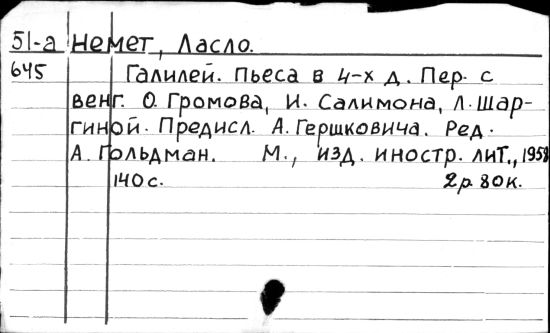 51-а Немет, Ласло.
645 Галилей. Пьеса в 4-х д. Пер. с
венг. О. Громова, И. Салимона, Л. Шар-
гиной. Предисл. А. Гершковича. Ред.
А. Гольдман. М., изд. иностр. лит., 1958
140 с. 2р. 80к.